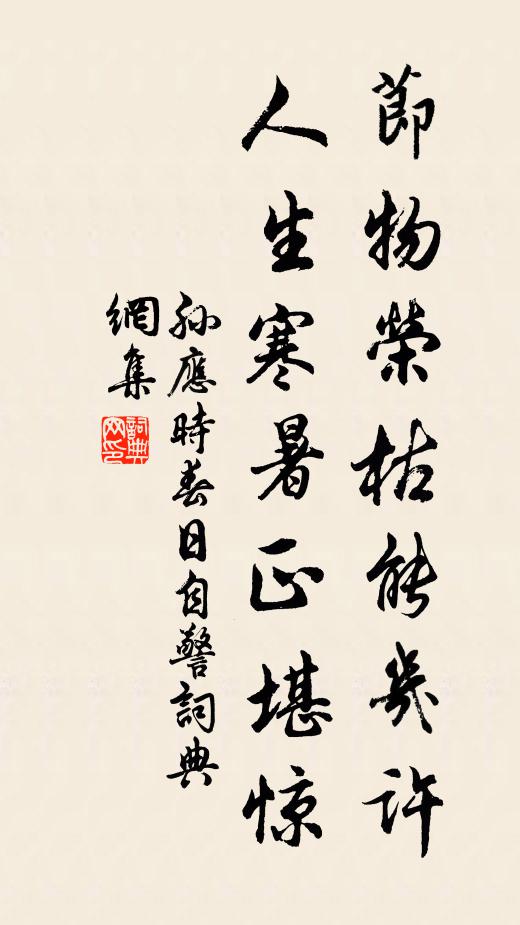 節物榮枯能幾許
人生寒暑正堪惊
孫應時春日自警詞典
網集
詞典
网印